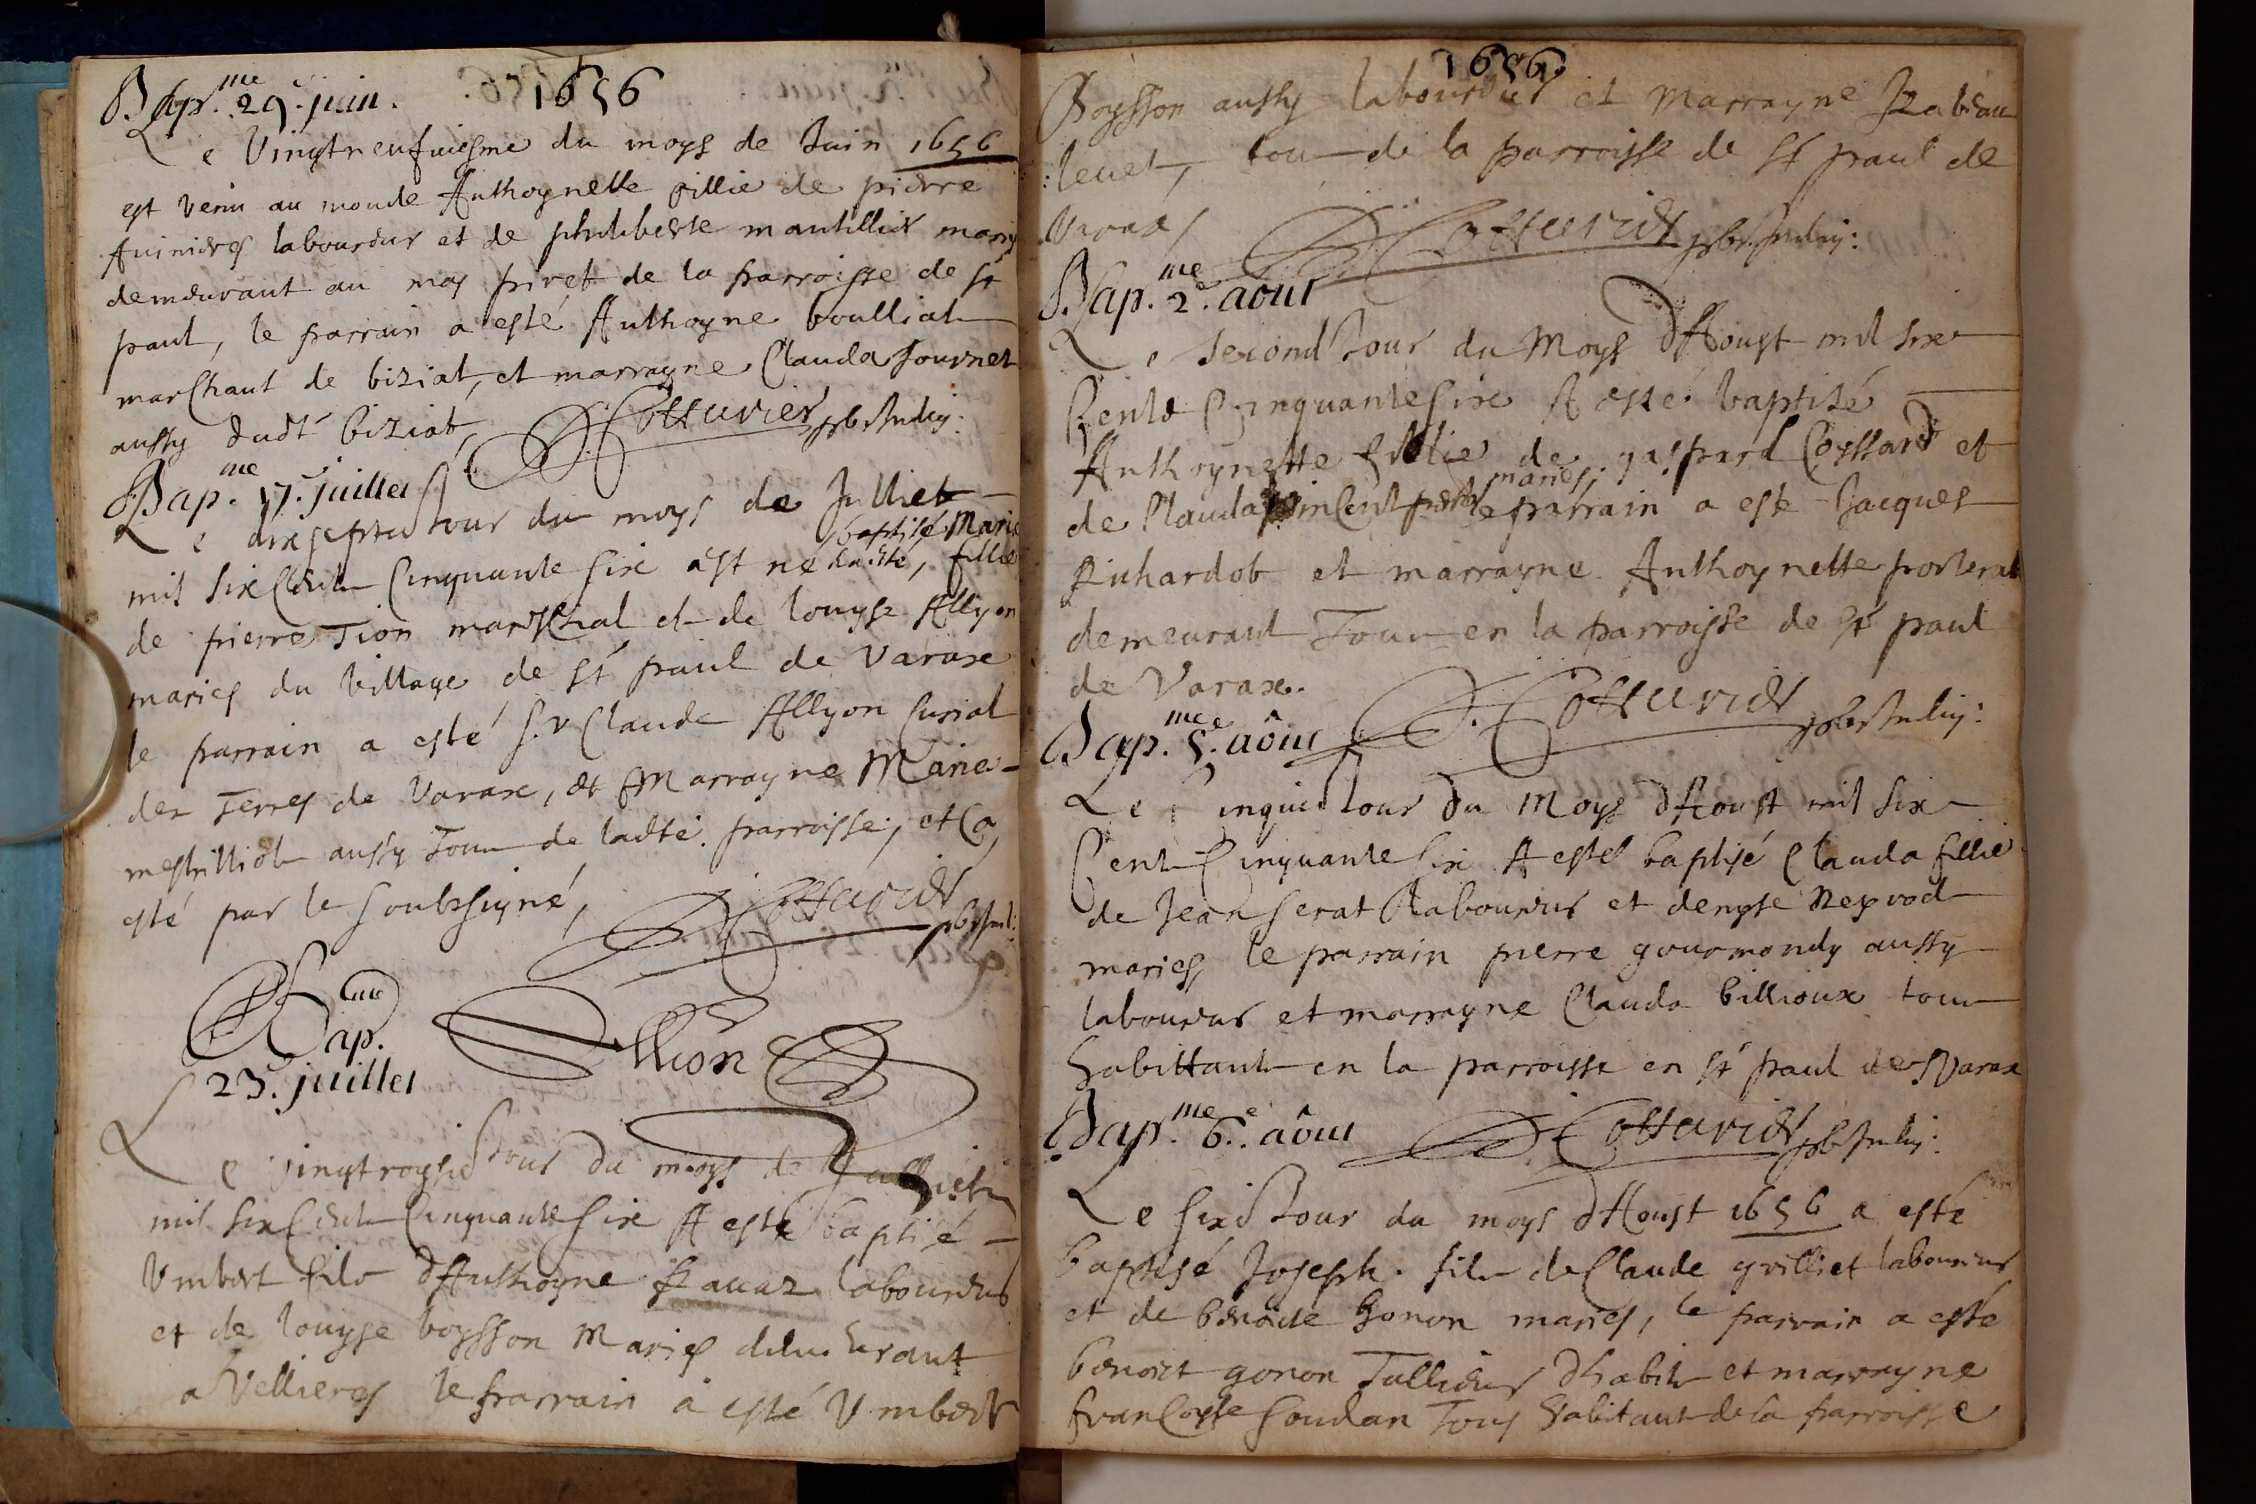 1656
Bap.me 29. juin.
Le Vingtneufuiesme du moys de Juin 1656
est venu au monde Anthoynette fillie de pierre
Auinieres laboureur et de philiberte mantillier mariés
demeurant au mas pivet de la parroisse de st
paul, le parrain a esté Anthoyne boulliat
marChant de biziat, et marrayne Clauda Journet
aussy dudt biziat,
Cotturier
Bap.me 17.e juillet
Le dixseptie Jour du moys de Julliet
mil six Cent Cinquante six est né baptisé Marie
fillie
de pierre Tion mareschal et de louyse Allyon
mariés du village de st paul de Varax
le parrain a esté s.r Claude Allyon Curial
des Terres de Varax, et Marrayne Marie
mestrilliot aussy Tous de ladte. parroisse, et Ca
esté par le soubsigné,
Cotturier
Bap.me
23. juillet
Allion
Le vingtroysie Jour du moys de Julliet
mil six Cent Cinquante six A esté baptisé
Vmbert fils dAnthoyne Rauaz laboureur
et de louyse boysson Mariés demeurant
a Vellieres le parrain a esté Vmbert
1656.
Boysson aussy laboureur et Marrayne Izabeau
leuet, tous de la parroisse de st paul de
Varax,
Cotturier
Bap.me 2.e août
Le second Jour du Moys dAoust mil six
Cents Cinquante six A esté baptisé
Anthoynette fillie de gaspard Coyssard et
mariés
de Clauda vincent le parrain a esté Jacques
Richardot et marrayne Anthoynette porterat
demeurant Tous en la parroisse de st paul
de Varax.
Cotturier
Bap.me 5.e août
Le Cinquie Jour du Moys dAoust mil six
Cent Cinquante six A esté baptisé Clauda fillie
de Jean serat laboureur et denyse Neyrod
mariés le parrain pierre gourmondy aussy
laboureur et marrayne Clauda billioux tous
habittant en la parroisse en st paul de Varax
Cotturier
Bap.me 6.e août
Le sixie Jour du moys dAoust 1656 a esté
baptisé Joseph. fils de Claude grilliet laboureur
et de benoite Gonon mariés, le parrain a esté
benoict gonon Tallieur dhabit et marrayne
franCoyse soudan Tous habitant de la parroisse